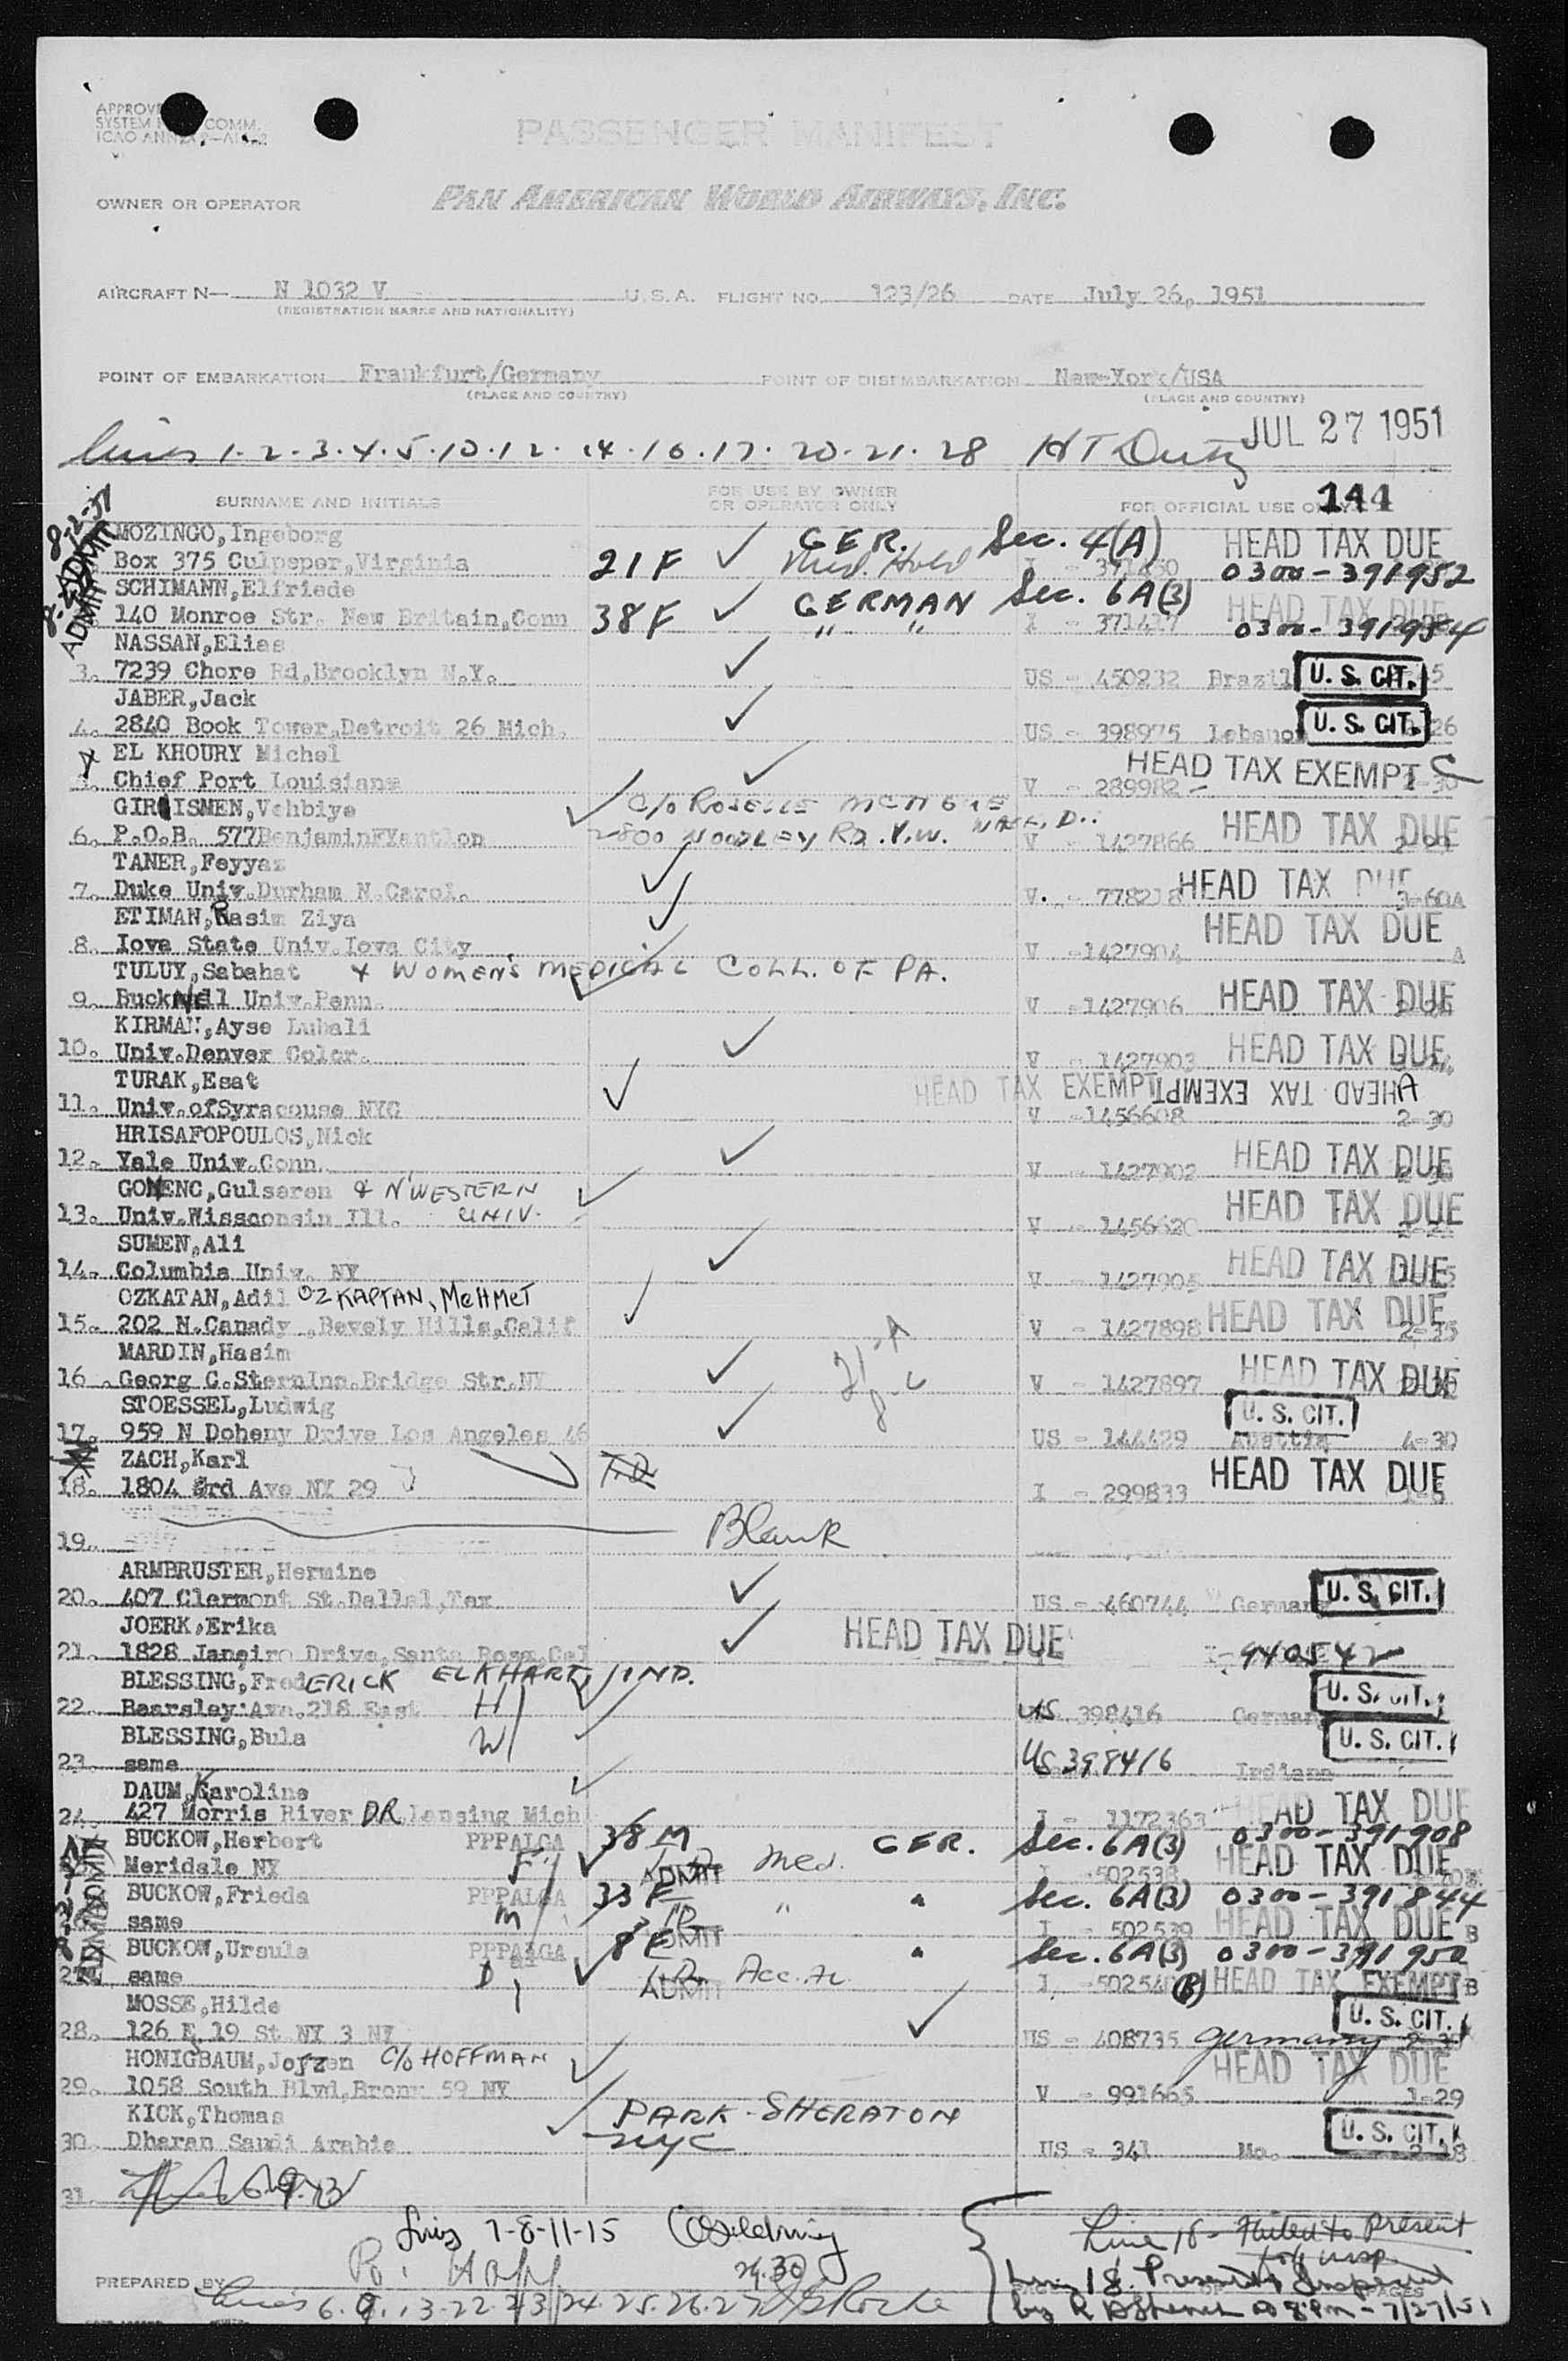 APPROVE
SYSTEM COMM.
PASSENGER MANIFEST
OWNER OR OPERATOR PAN AMERICAN WORLD AIRWAYS, INC.
AIRCRAFT N— N 1032 V U.S.A. FLIGHT NO. 123/26 DATE July 26, 1951
(REGISTRATION MARKS AND NATIONALITY)
POINT OF EMBARKATION Frankfurt/Germany POINT OF DISEMBARKATION New-York/USA
(PLACE AND COUNTRY) (PLACE AND COUNTRY)
JUL 27 1951
lines 1.2.3.4.5.10.12.14.16.17.20.21.28 HT Duty
SURNAME AND INITIALS FOR USE BY OWNER OR OPERATOR ONLY FOR OFFICIAL USE ONLY 144
MOZINGO,Ingeborg GER. Sec. 4(A) HEAD TAX DUE
Box 375 Culpeper,Virginia 21F Med. Hold 0300-391952
SCHIMANN,Elfriede GERMAN Sec. 6A(3) HEAD TAX DUE
140 Monroe Str. New Britain,Conn 38F " " I - 371417 0300-391954
NASSAN,Elias
3. 7239 Chore Rd,Brooklyn N.Y. US - 450232 Brazil U.S. CIT.
JABER,Jack
4. 2840 Book Tower,Detroit 26 Mich. US - 398975 Lebanon U.S. CIT. 26
EL KHOURY Michel HEAD TAX EXEMPT C
Chief Port Louisiana V - 289982
GIRISMEN,Vehbiye C/O ROSELLE
6. P.O.B. 577 V - 1427866 HEAD TAX DUE
TANER,Feyyaz
7. Duke Univ.Durham N.Carol. V. - 778218 HEAD TAX DUE
ETIMAN,Rasim Ziya HEAD TAX DUE
8. Iova State Univ.Iova City V -1427904 A
TULUY,Sabahat & WOMEN'S MEDICAL COLL. OF PA.
9. Bucknell Univ.Penn. V -1427906 HEAD TAX DUE
KIRMAN,Ayse Lubali
10. Univ.Denver Color. V - 1427903 HEAD TAX DUE
TURAK,Esat HEAD TAX EXEMPT HEAD TAX EXEMPT A
11. Univ.ofSyracouse NYC V -1456608 2-30
HRISAFOPOULOS,Nick
12. Yale Univ.Conn. V - 1427902 HEAD TAX DUE
GONENC,Gulseren & N'WESTERN
13. Univ.Wissconsin Ill. UNIV. V - 1456620 HEAD TAX DUE
SUMEN,Ali
14. Columbia Univ. NY V - 1427905 HEAD TAX DUE
OZKATAN,Adil OZKAPTAN, MEHMET
15. 202 N.Canady ,Bevely Hills,Calif V - 1427898 HEAD TAX DUE 2-35
MARDIN,Hasim 21-A
16. Georg C.SternInn.Bridge Str.NY 8-C V - 1427897 HEAD TAX DUE
STOESSEL,Ludwig U.S. CIT.
17. 959 N Doheny Drive Los Angeles 46 US - 144429 Austtia 4-30
ZACH,Karl
18. 1804 3rd Ave NY 29 I - 299833 HEAD TAX DUE
19. Blank
ARMBRUSTER,Hermine
20. 407 Clermont St.Dallal,Tex US - 460744 Germany U.S. CIT.
JOERK,Erika HEAD TAX DUE
21. 1828 Janeiro Drive,Santa Rosa,Cal 940542
BLESSING,FredERICK ELKHART, IND.
22. Bearsley Ave.218 East H US 398416 German U.S. CIT.
BLESSING,Bula W
23. same US 398416 Indiana U.S. CIT.
DAUM,Karoline
24. 427 Morris River DR Lensing Mich I - 1172363 HEAD TAX DUE
BUCKOW,Herbert PPPALGA 38 M GER. Sec. 6A(3) 0300-391908
Meridale NY F ADMIT Med. HEAD TAX DUE
BUCKOW,Frieda PPPALGA 33 F " Sec. 6A(3) 0300-391844
same M ADMIT " I - 502539 HEAD TAX DUE B
BUCKOW,Ursula PPPALGA 8 F " Sec. 6A(3) 0300-391950
same D ADMIT HEAD TAX EXEMPT B
MOSSE,Hilde
28. 126 E. 19 St NY 3 NY US - 408735 Germany U.S. CIT.
HONIGBAUM, C/O HOFFMAN
29. 1058 South Blvd,Bronx 59 NY V - 991665 HEAD TAX DUE 1-29
KICK,Thomas PARK-SHERATON
30. Dharan Saudi Arabie NYC US - 341 Mo. U.S. CIT.
31.
lines 7-8-11-15
Line 18 - Failed to Present
for insp.
PREPARED BY
Line 18. Presented
lines 6.9.13.22.23.24.25.26.27
by 8 pm - 7/27/51